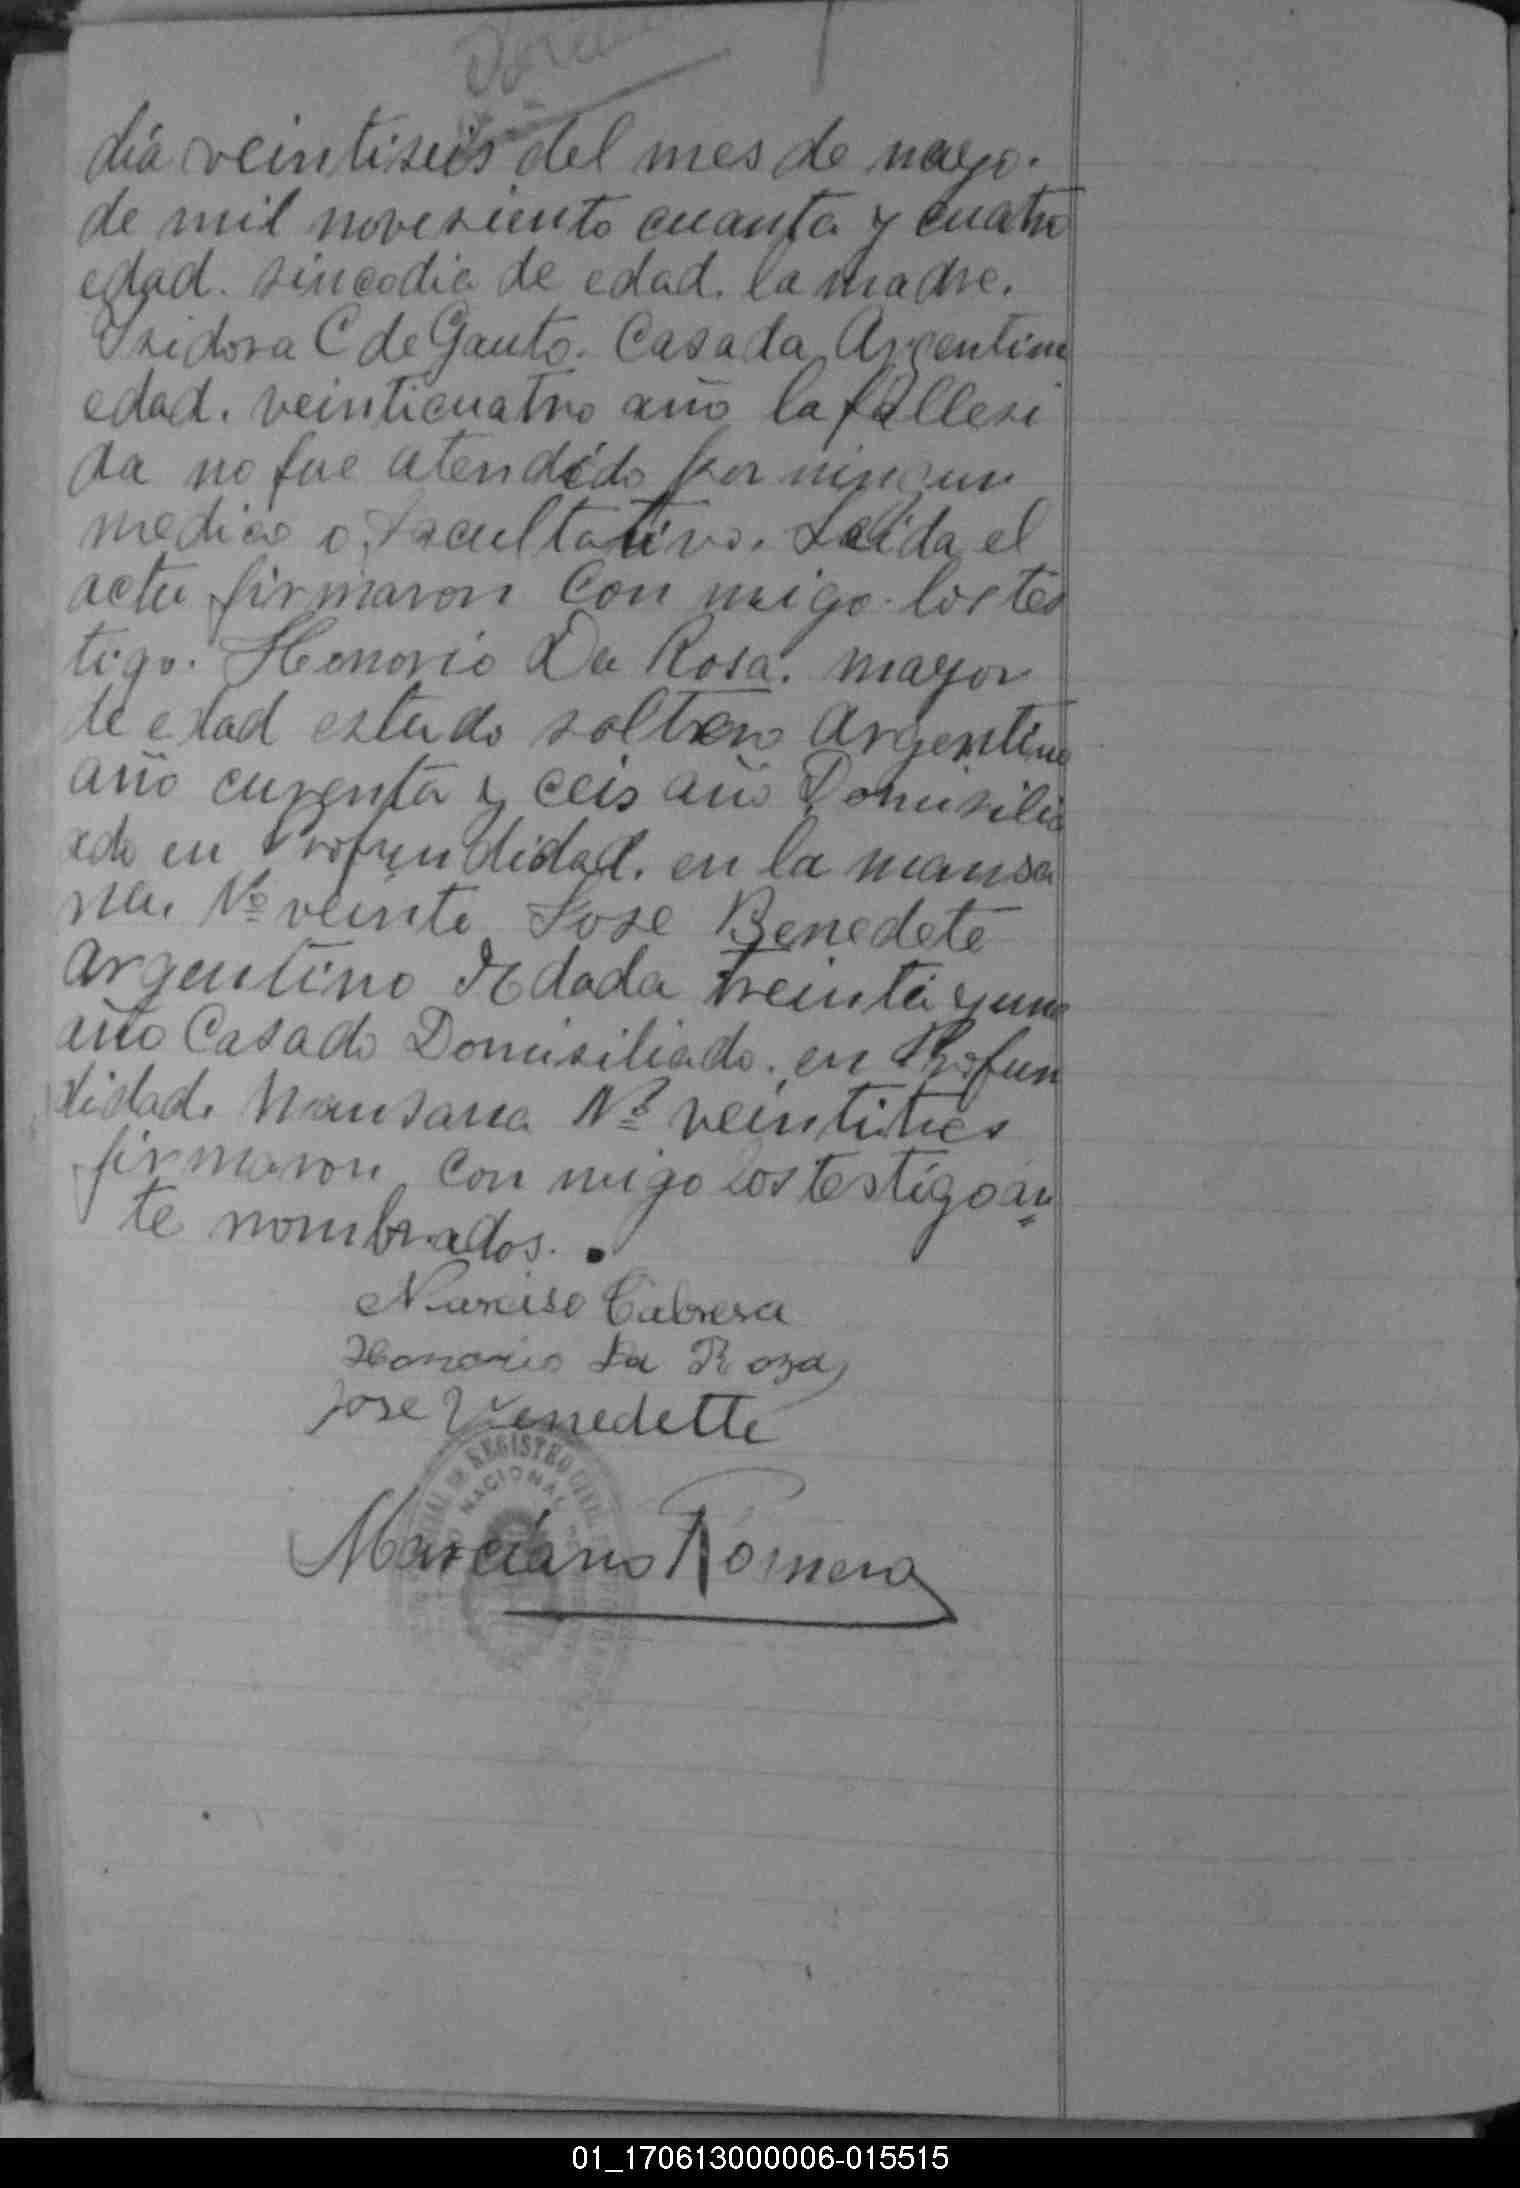 día veintiseis del mes de mayo.
de mil novesiento cuanta y cuatro
edad. sincodia de edad. la madre.
Isidora C de Gauto. Casada Argentina
edad. veinticuatro año la fallesi
da no fue atendido por ningun
medico o facultativo. Leida el
acta firmaron Con migo los tes
tigo. Honorio Da Rosa. mayor
de edad estado soltero Argentino
año curenta y ceis año Domisilia
do en Profundidad. en la mansa
na. Nº veinte Jose Benedete
Argentino Edada treinta y uno
año Casado Domisiliado. en Profun
didad. Mansana Nº veintitres
firmaron Con migo los testigo an
te nombrados.
Narciso Cabrera
Honorio Da Roza
Jose Venedette
REGISTRO CIVIL
NACIONAL
Marciano Romero
01_170613000006-015515